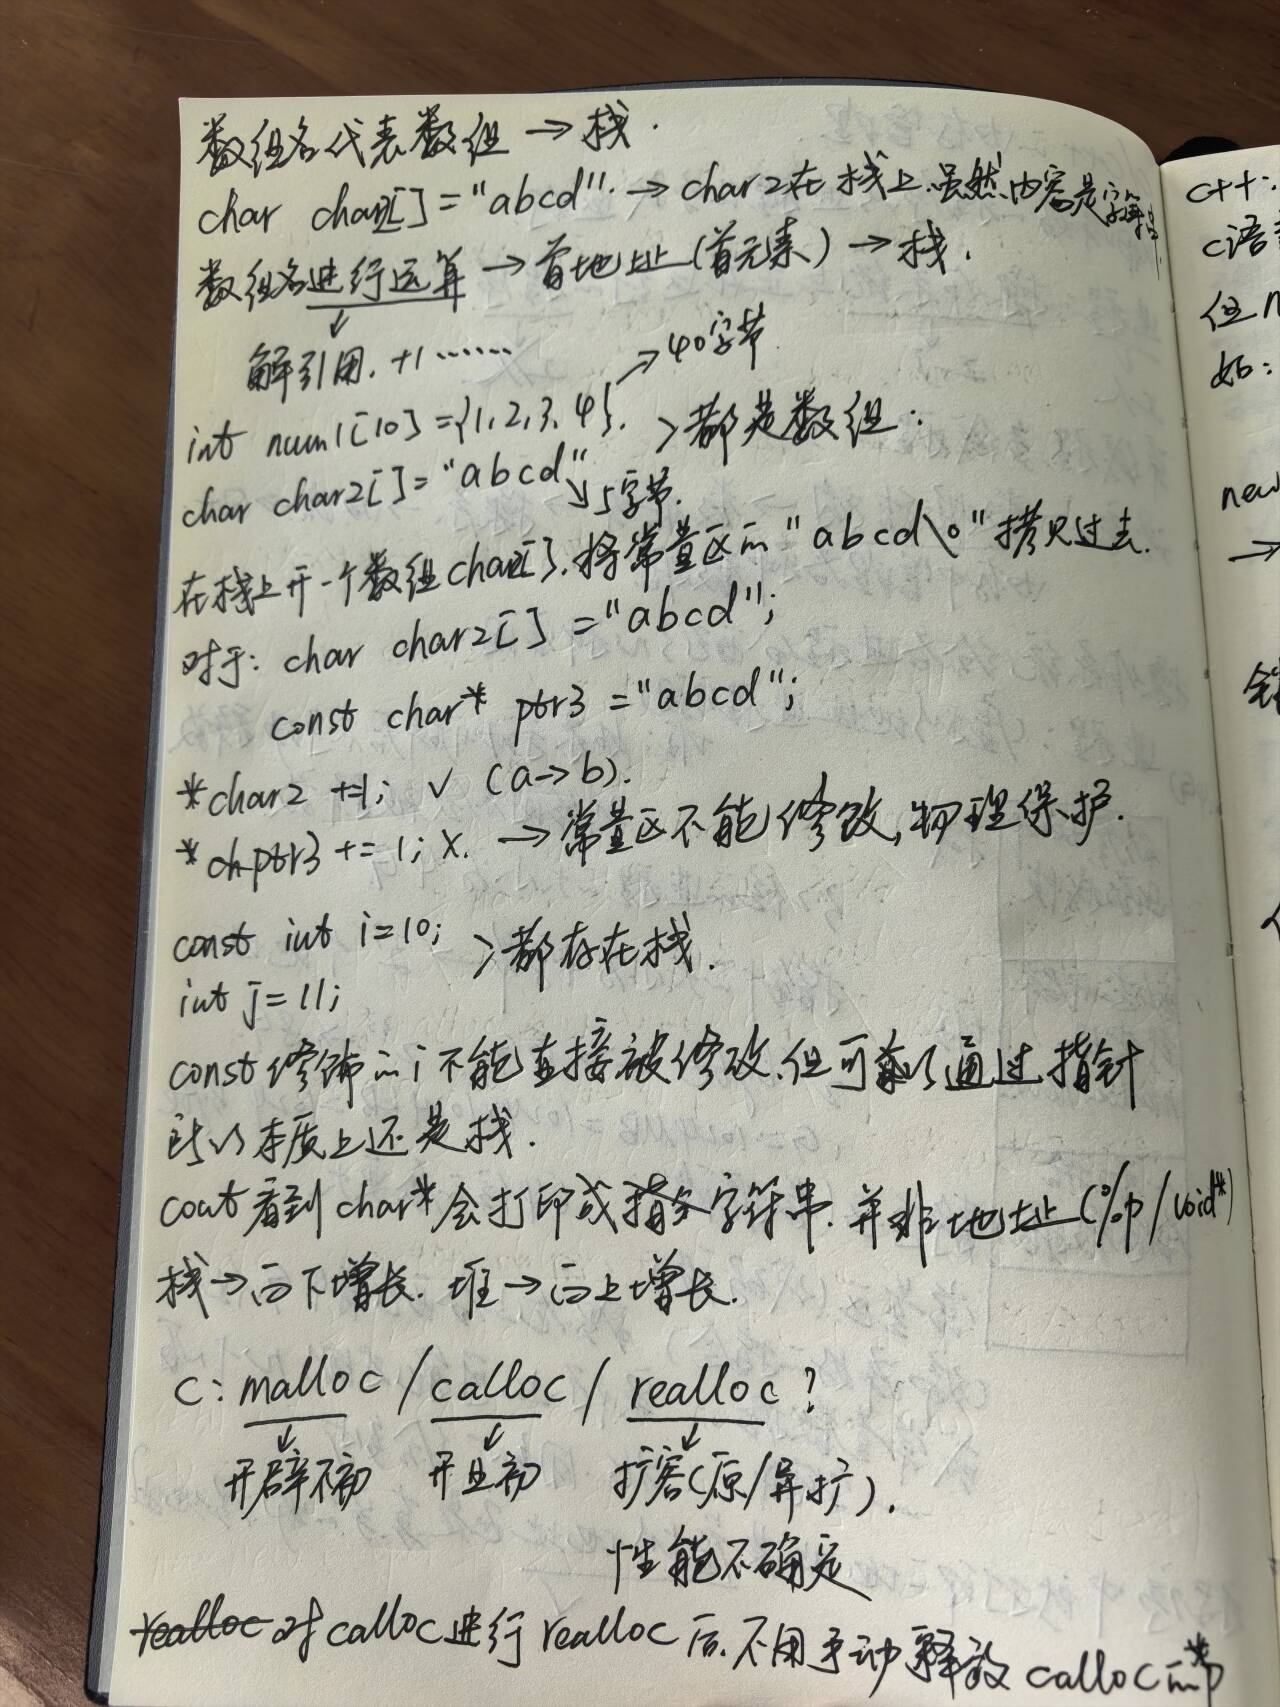 数组名代表数组 → 栈.
char char2[] = "abcd". → char2在栈上.虽然内容是字符串.
数组名进行运算 → 首地址(首元素) → 栈.
解引用. +1 ······
→ 40字节
int num1[10] = {1,2,3,4}. > 都是数组:
char char2[] = "abcd" ↘ 5字节.
在栈上开一个数组char2[].将常量区的"abcd\0"拷贝过去.
对于: char char2[] = "abcd";
const char* ptr3 = "abcd";
*char2 +=1; √ (a→b).
*chptr3 += 1; ×. → 常量区不能修改,物理保护.
const int i=10; > 都存在栈.
int j=11;
const修饰的i不能直接被修改.但可以通过指针
所以本质上还是栈.
cout看到char*会打印成指向字符串.并非地址(%p/void*)
栈→向下增长. 堆→向上增长.
C: malloc / calloc / realloc ?
开辟不初 开且初 扩容(原/异扩).
性能不确定
realloc 对calloc进行realloc后.不用手动释放calloc的*
C++:
C语
但n
如:
new
→